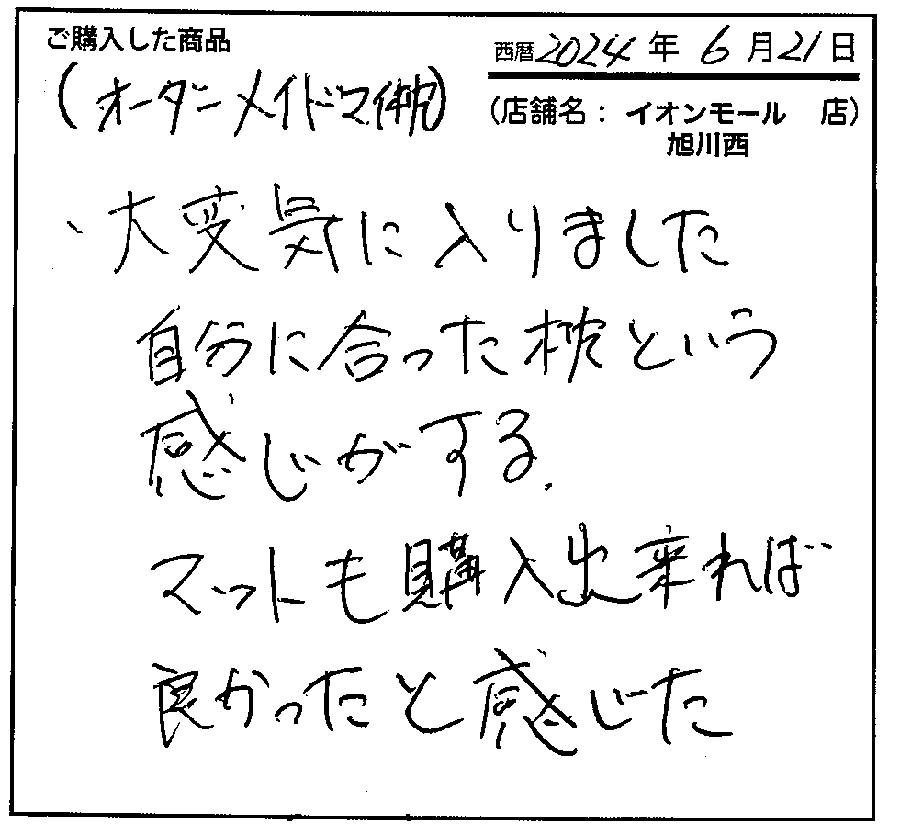 ご購入した商品
西暦2024年6月21日
(オーダーメイドマイ枕)
(店舗名：イオンモール 店)
旭川西
、大変気に入りました
自分に合った枕という
感じがする.
マットも購入出来れば
良かったと感じた